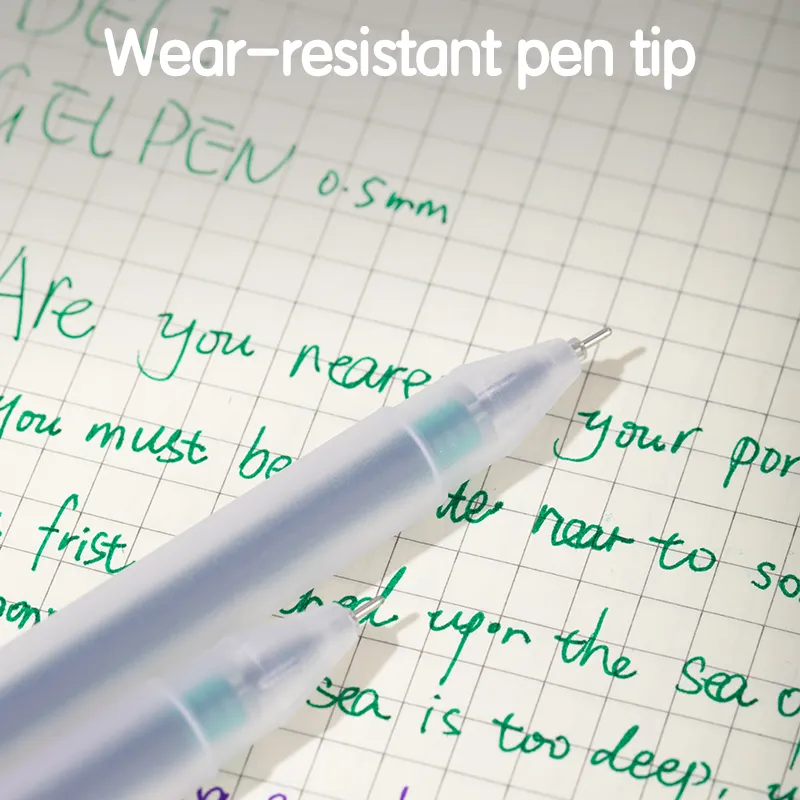 Wear-resistant pen tip
DELI
GEL PEN 0.5mm
Are you neare your por
You must be te near to so
frist
upon the sea o
sea is too deep,